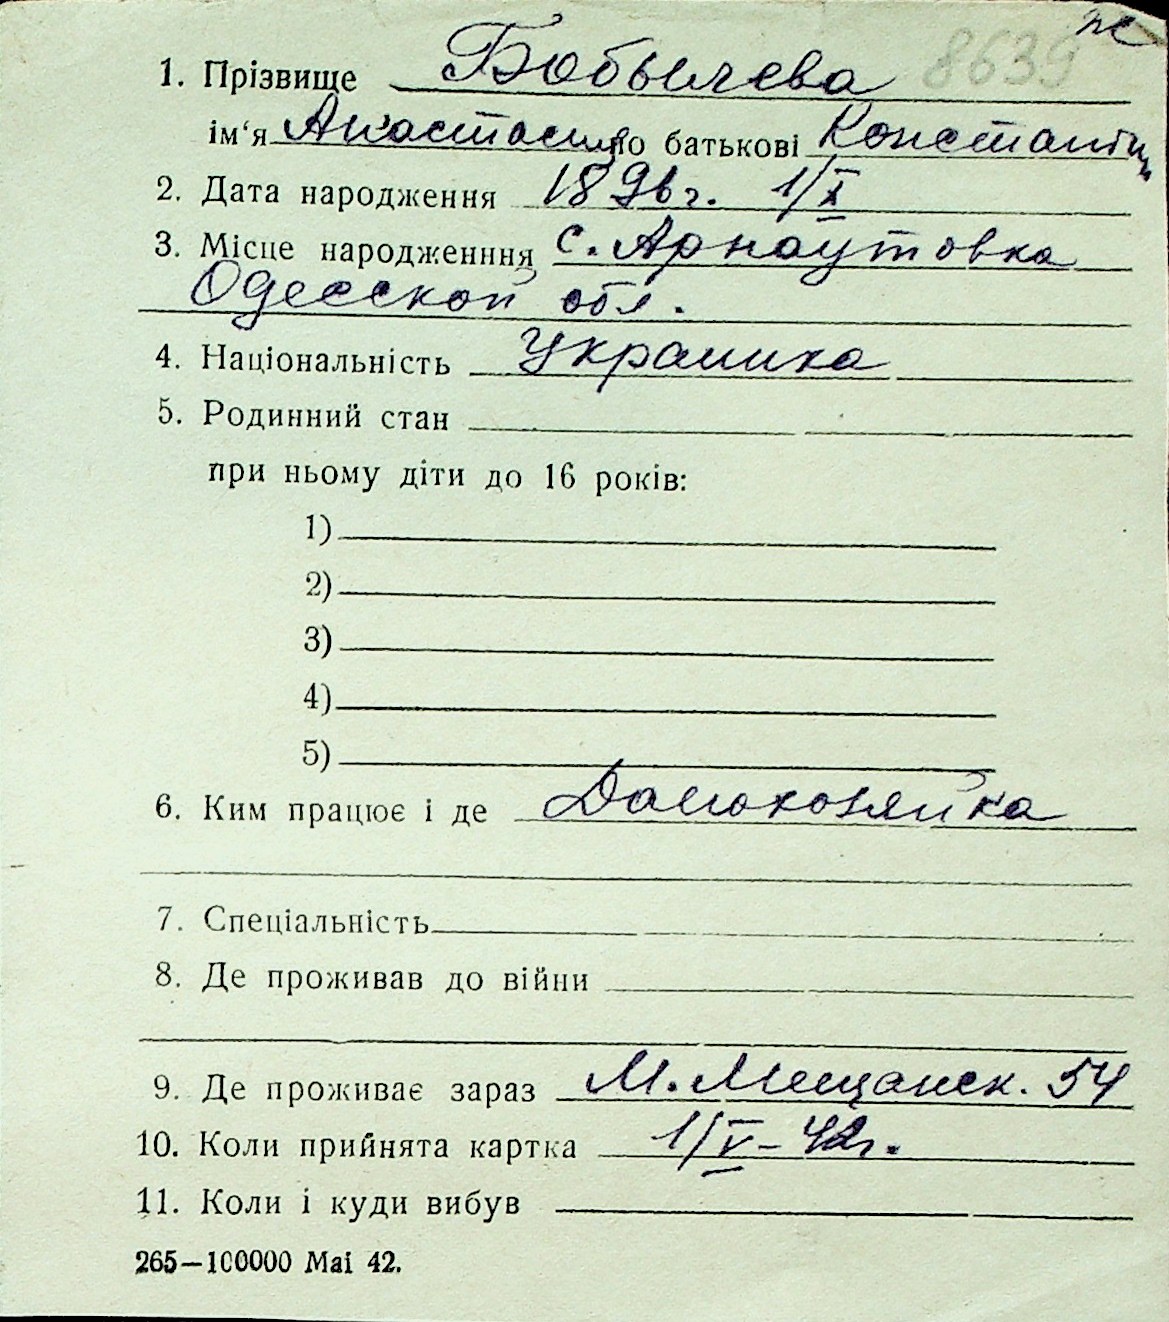 ж
8639
1. Прізвище Бобылева
ім'я Анастасия по батькові Константин
2. Дата народження 1896 г. 1/X
3. Місце народженння с. Арнаутовка
Одесской обл.
4. Національність Украинка
5. Родинний стан
при ньому діти до 16 років:
1)
2)
3)
4)
5)
6. Ким працює і де Домохозяйка
7. Спеціальність
8. Де проживав до війни
9. Де проживає зараз М. Мещанск. 54
10. Коли прийнята картка 1/V-42г.
11. Коли і куди вибув
265—100000 Маі 42.